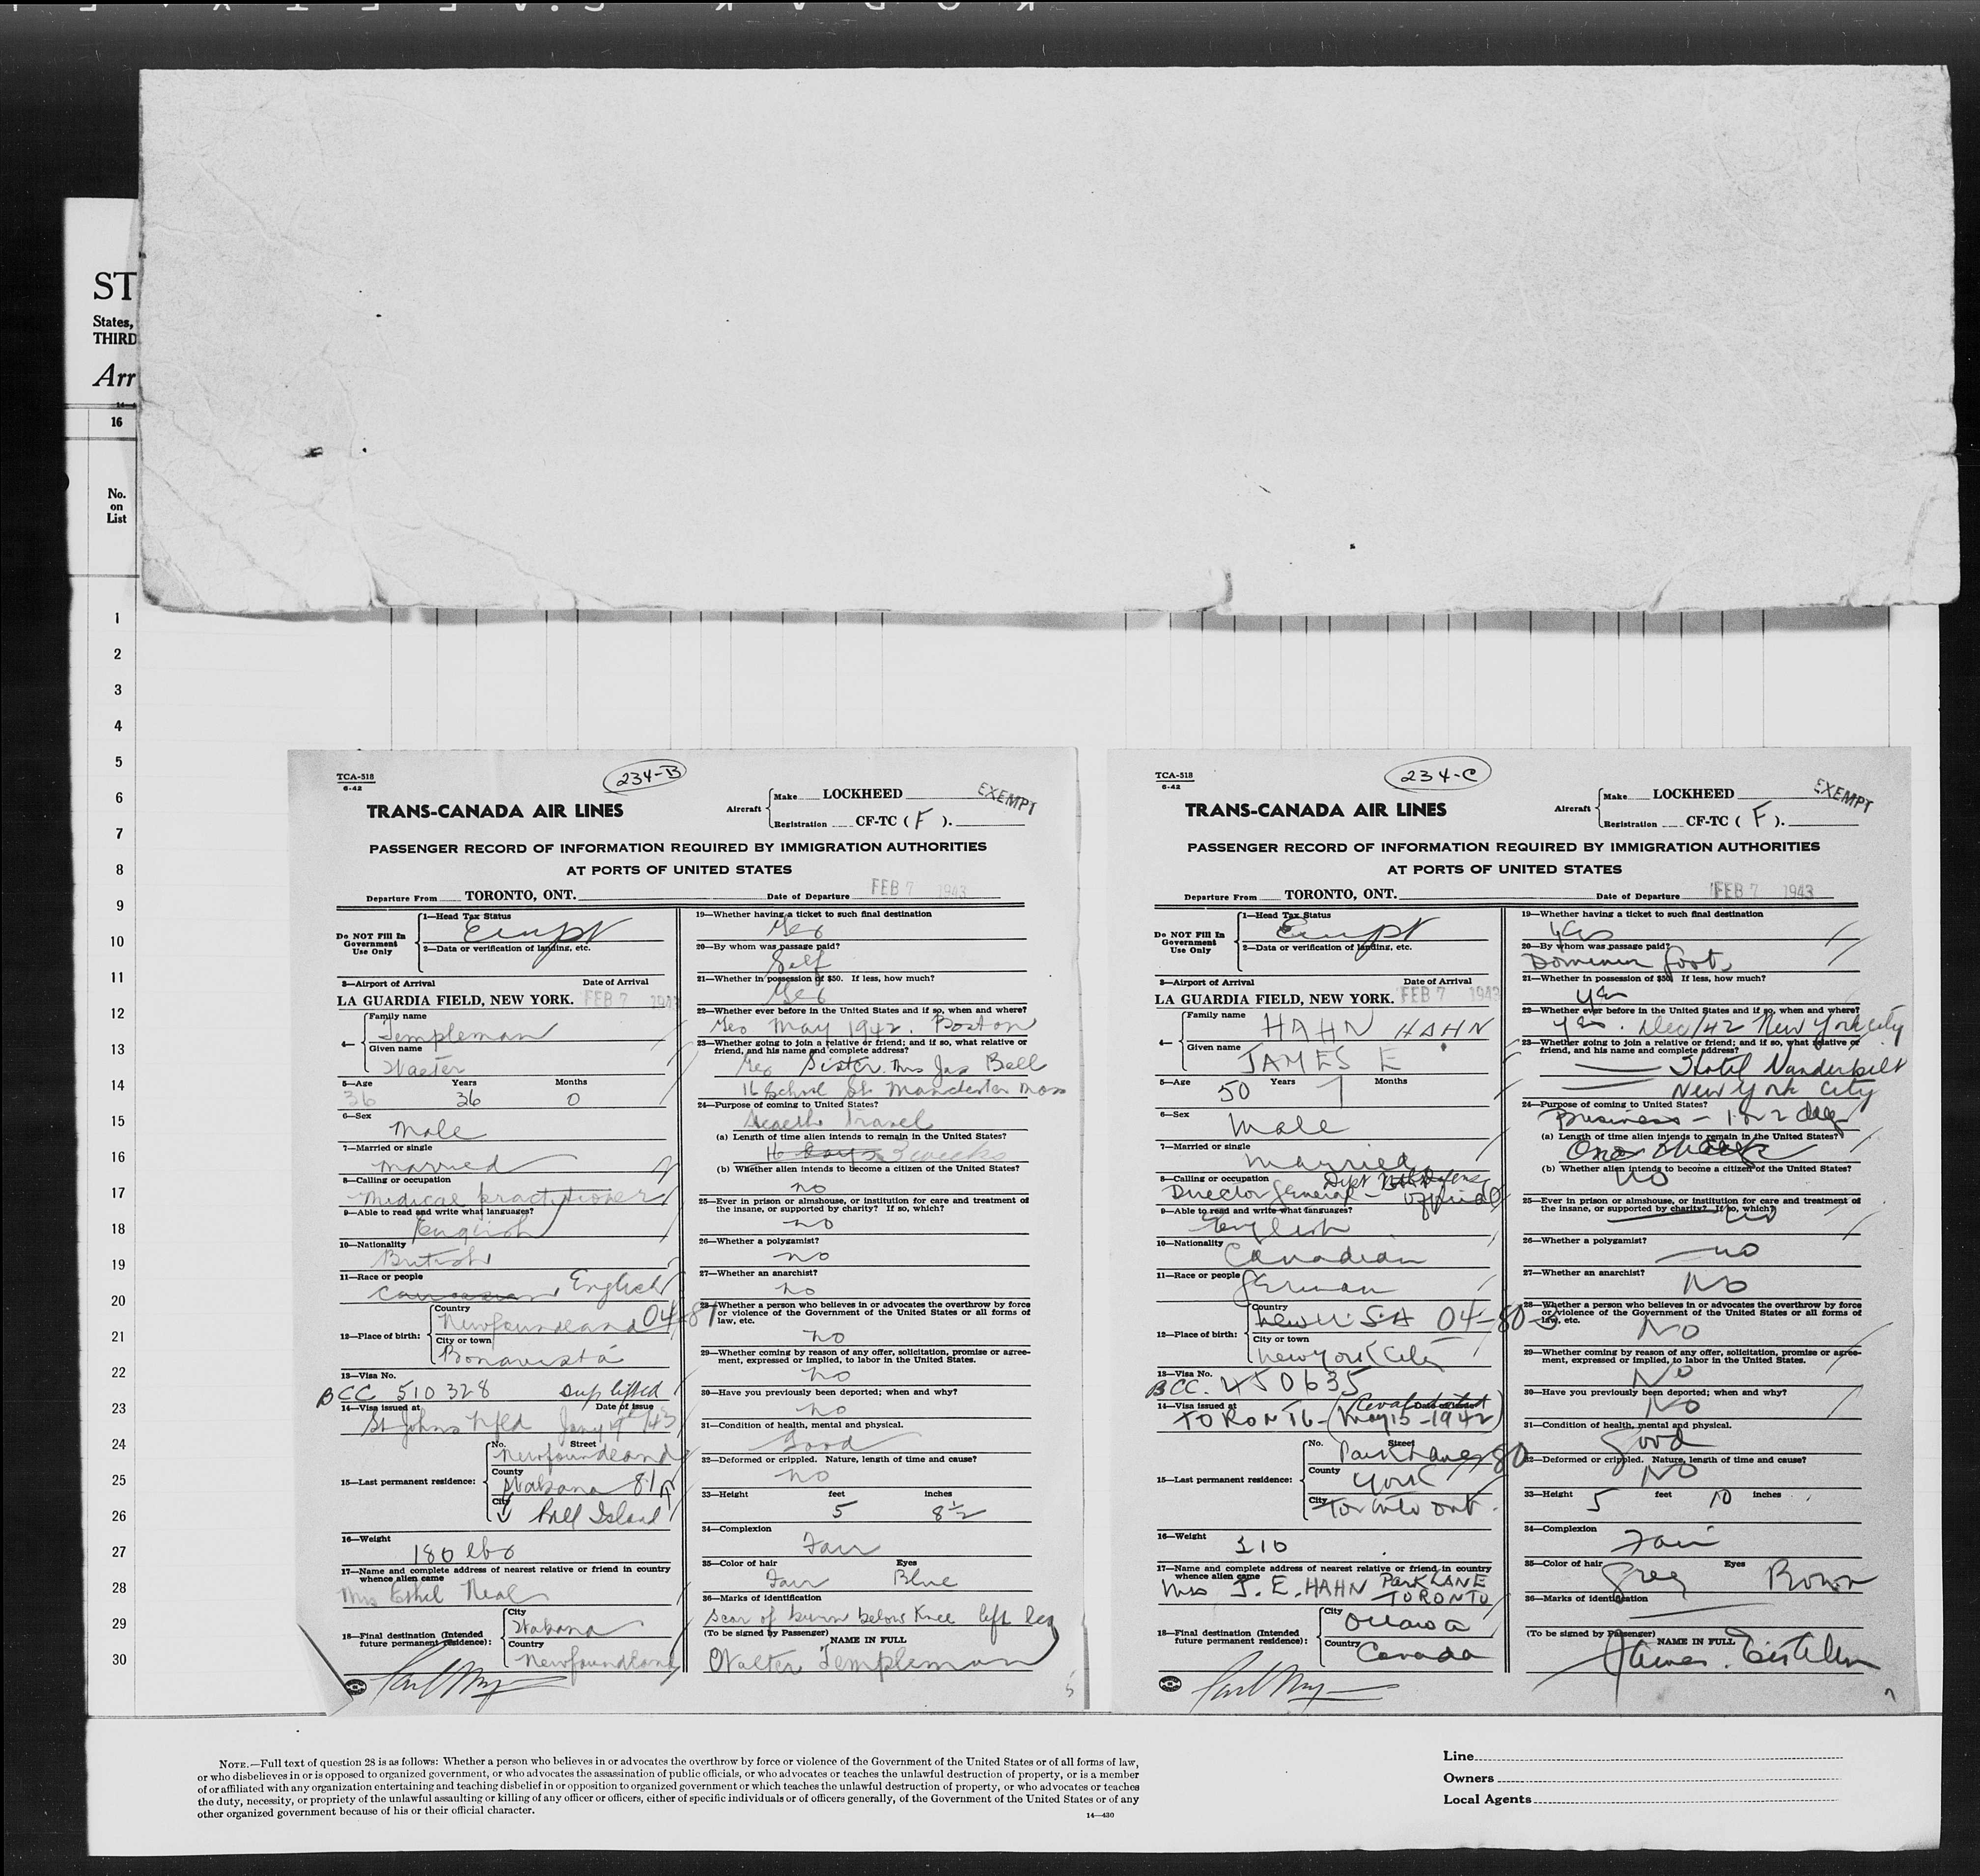 ST
States,
THIRD
Arr
16
No.
on
List
1
2
3
4
5
6
7
8
9
10
11
12
13
14
15
16
17
18
19
20
21
22
23
24
25
26
27
28
29
30
TCA-518
6-42
234-B
EXEMPT
TRANS-CANADA AIR LINES
Aircraft
Make LOCKHEED
Registration CF-TC ( F ).
PASSENGER RECORD OF INFORMATION REQUIRED BY IMMIGRATION AUTHORITIES
AT PORTS OF UNITED STATES
Departure From TORONTO, ONT. Date of Departure FEB 7 1943
Do NOT Fill In Government Use Only
1—Head Tax Status
Exempt
2—Data or verification of landing, etc.
3—Airport of Arrival Date of Arrival
LA GUARDIA FIELD, NEW YORK. FEB 7 1943
4— Family name
Templeman
Given name
Walter
5—Age Years Months
36 36 0
6—Sex
Male
7—Married or single
Married
8—Calling or occupation
Medical practitioner
9—Able to read and write what languages?
English
10—Nationality
British
11—Race or people
Caucasian English
12—Place of birth:
Country
Newfoundland 04-81
City or town
Bonavista
13—Visa No.
BCC 510328 Dup lifted
14—Visa issued at Date of issue
St Johns Nfld Jany 9th/43
15—Last permanent residence:
No. Street
Newfoundland
County
Wabana 81
City
Bell Island
16—Weight
180 lbs
17—Name and complete address of nearest relative or friend in country
whence alien came
Mrs Ethel Neal
18—Final destination (Intended
future permanent residence):
City
Wabana
Country
Newfoundland
19—Whether having a ticket to such final destination
Yes
20—By whom was passage paid?
Self
21—Whether in possession of $50. If less, how much?
Yes
22—Whether ever before in the United States and if so, when and where?
Yes May 1942. Boston
23—Whether going to join a relative or friend; and if so, what relative or
friend, and his name and complete address?
Yes Sister. Mrs Jas Bell
16 School St. Manchester Mass
24—Purpose of coming to United States?
Health Travel
(a) Length of time alien intends to remain in the United States?
16 days 3 weeks
(b) Whether alien intends to become a citizen of the United States?
no
25—Ever in prison or almshouse, or institution for care and treatment of
the insane, or supported by charity? If so, which?
no
26—Whether a polygamist?
no
27—Whether an anarchist?
no
28—Whether a person who believes in or advocates the overthrow by force
or violence of the Government of the United States or all forms of
law, etc.
no
29—Whether coming by reason of any offer, solicitation, promise or agree-
ment, expressed or implied, to labor in the United States.
no
30—Have you previously been deported; when and why?
no
31—Condition of health, mental and physical.
Good
32—Deformed or crippled. Nature, length of time and cause?
no
33—Height feet inches
5 8½
34—Complexion
Fair
35—Color of hair Eyes
Fair Blue
36—Marks of identification
Scar of burn below Knee left leg
(To be signed by Passenger)
NAME IN FULL
Walter Templeman
TCA-518
6-42
234-C
EXEMPT
TRANS-CANADA AIR LINES
Aircraft
Make LOCKHEED
Registration CF-TC ( F ).
PASSENGER RECORD OF INFORMATION REQUIRED BY IMMIGRATION AUTHORITIES
AT PORTS OF UNITED STATES
Departure From TORONTO, ONT. Date of Departure FEB 7 1943
Do NOT Fill In Government Use Only
1—Head Tax Status
Exempt
2—Data or verification of landing, etc.
3—Airport of Arrival Date of Arrival
LA GUARDIA FIELD, NEW YORK. FEB 7 1943
4— Family name
HAHN HAHN
Given name
JAMES E
5—Age Years Months
50 7
6—Sex
Male
7—Married or single
Married
8—Calling or occupation
Director General - Dept Nat Defense Official
9—Able to read and write what languages?
English
10—Nationality
Canadian
11—Race or people
German
12—Place of birth:
Country
U.S.A 04-80-3
City or town
New York City
13—Visa No.
BCC. 450635
14—Visa issued at Date of issue
TORONTO - (May 15-1942)
15—Last permanent residence:
No. Street
Park Lane 80
County
York
City
Toronto Ont.
16—Weight
210
17—Name and complete address of nearest relative or friend in country
whence alien came
Mrs J. E. HAHN PARK LANE
TORONTO
18—Final destination (Intended
future permanent residence):
City
Ottawa
Country
Canada
19—Whether having a ticket to such final destination
Yes
20—By whom was passage paid?
Dominion Govt.
21—Whether in possession of $50. If less, how much?
Yes
22—Whether ever before in the United States and if so, when and where?
Yes. Dec/42 New York City
23—Whether going to join a relative or friend; and if so, what relative or
friend, and his name and complete address?
Hotel Vanderbilt
New York City
24—Purpose of coming to United States?
Business - 1 or 2 days
(a) Length of time alien intends to remain in the United States?
One
(b) Whether alien intends to become a citizen of the United States?
No
25—Ever in prison or almshouse, or institution for care and treatment of
the insane, or supported by charity? If so, which?
No
26—Whether a polygamist?
no
27—Whether an anarchist?
No
28—Whether a person who believes in or advocates the overthrow by force
or violence of the Government of the United States or all forms of
law, etc.
No
29—Whether coming by reason of any offer, solicitation, promise or agree-
ment, expressed or implied, to labor in the United States.
No
30—Have you previously been deported; when and why?
No
31—Condition of health, mental and physical.
Good
32—Deformed or crippled. Nature, length of time and cause?
No
33—Height feet inches
5 10
34—Complexion
Fair
35—Color of hair Eyes
Grey Brown
36—Marks of identification
(To be signed by Passenger)
NAME IN FULL
James
NOTE.—Full text of question 28 is as follows: Whether a person who believes in or advocates the overthrow by force or violence of the Government of the United States or of all forms of law,
or who disbelieves in or is opposed to organized government, or who advocates the assassination of public officials, or who advocates or teaches the unlawful destruction of property, or is a member
of or affiliated with any organization entertaining and teaching disbelief in or opposition to organized government or which teaches the unlawful destruction of property, or who advocates or teaches
the duty, necessity, or propriety of the unlawful assaulting or killing of any officer or officers, either of specific individuals or of officers generally, of the Government of the United States or of any
other organized government because of his or their official character.
14—430
Line
Owners
Local Agents